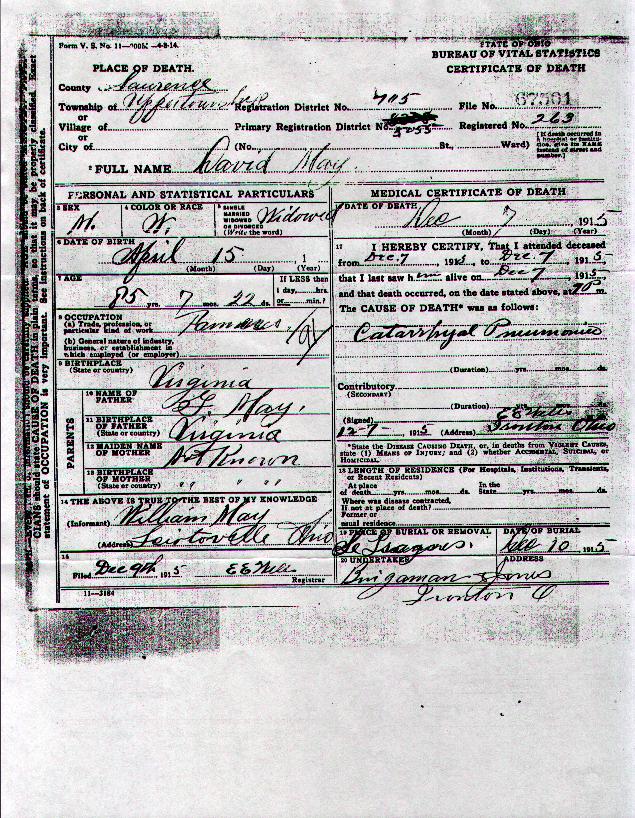 Form V. S. No. 11— 4-8-14.
STATE OF OHIO
BUREAU OF VITAL STATISTICS
CERTIFICATE OF DEATH
PLACE OF DEATH.
County Lawrence
Township of Upper Township Registration District No. 705 File No. 67561
or
Village of Primary Registration District No. 5055 Registered No. 263
or
City of (No. St., Ward) [If death occurred in a hospital or institution, give its NAME instead of street and number.]
FULL NAME David May
PERSONAL AND STATISTICAL PARTICULARS
3 SEX M. 4 COLOR OR RACE W. 5 SINGLE MARRIED WIDOWED OR DIVORCED (Write the word) Widowed
6 DATE OF BIRTH
April 15 , 1
(Month) (Day) (Year)
7 AGE
85 yrs. 7 mos. 22 ds.
If LESS than 1 day, hrs. or min.?
8 OCCUPATION
(a) Trade, profession, or particular kind of work
(b) General nature of industry, business, or establishment in which employed (or employer)
9 BIRTHPLACE
(State or country) Virginia
PARENTS
10 NAME OF FATHER May.
11 BIRTHPLACE OF FATHER
(State or country) Virginia
12 MAIDEN NAME OF MOTHER Not Known
13 BIRTHPLACE OF MOTHER
(State or country) " " " "
14 THE ABOVE IS TRUE TO THE BEST OF MY KNOWLEDGE
(Informant) William May
(Address) Sciotoville Ohio
15
Filed Dec 9th, 1915 Registrar
11—3184
MEDICAL CERTIFICATE OF DEATH
DATE OF DEATH
Dec 7 1915
(Month) (Day) (Year)
17 I HEREBY CERTIFY, That I attended deceased
from Dec. 7, 1915, to Dec. 7, 1915
that I last saw him alive on Dec 7 1915,
and that death occurred, on the date stated above, at m.
The CAUSE OF DEATH* was as follows:
Catarrhyal Pneumonia
(Duration) yrs. mos. ds.
Contributory
(SECONDARY)
(Duration) yrs. mos. ds.
(Signed)
12-7, 1915 (Address) Ironton Ohio
*State the DISEASE CAUSING DEATH, or, in deaths from VIOLENT CAUSES, state (1) MEANS OF INJURY; and (2) whether ACCIDENTAL, SUICIDAL, or HOMICIDAL.
18 LENGTH OF RESIDENCE (For Hospitals, Institutions, Transients, or Recent Residents)
At place of death yrs. mos. ds. In the State yrs. mos. ds.
Where was disease contracted, If not at place of death?
Former or usual residence
19 PLACE OF BURIAL OR REMOVAL DATE OF BURIAL
Dec 10 1915
20 UNDERTAKER ADDRESS
Brigaman & Jones
Ironton O
CIANS should state CAUSE OF DEATH in plain terms, so that it may be properly classified. Exact
statement of OCCUPATION is very important. See instructions on back of certificate.